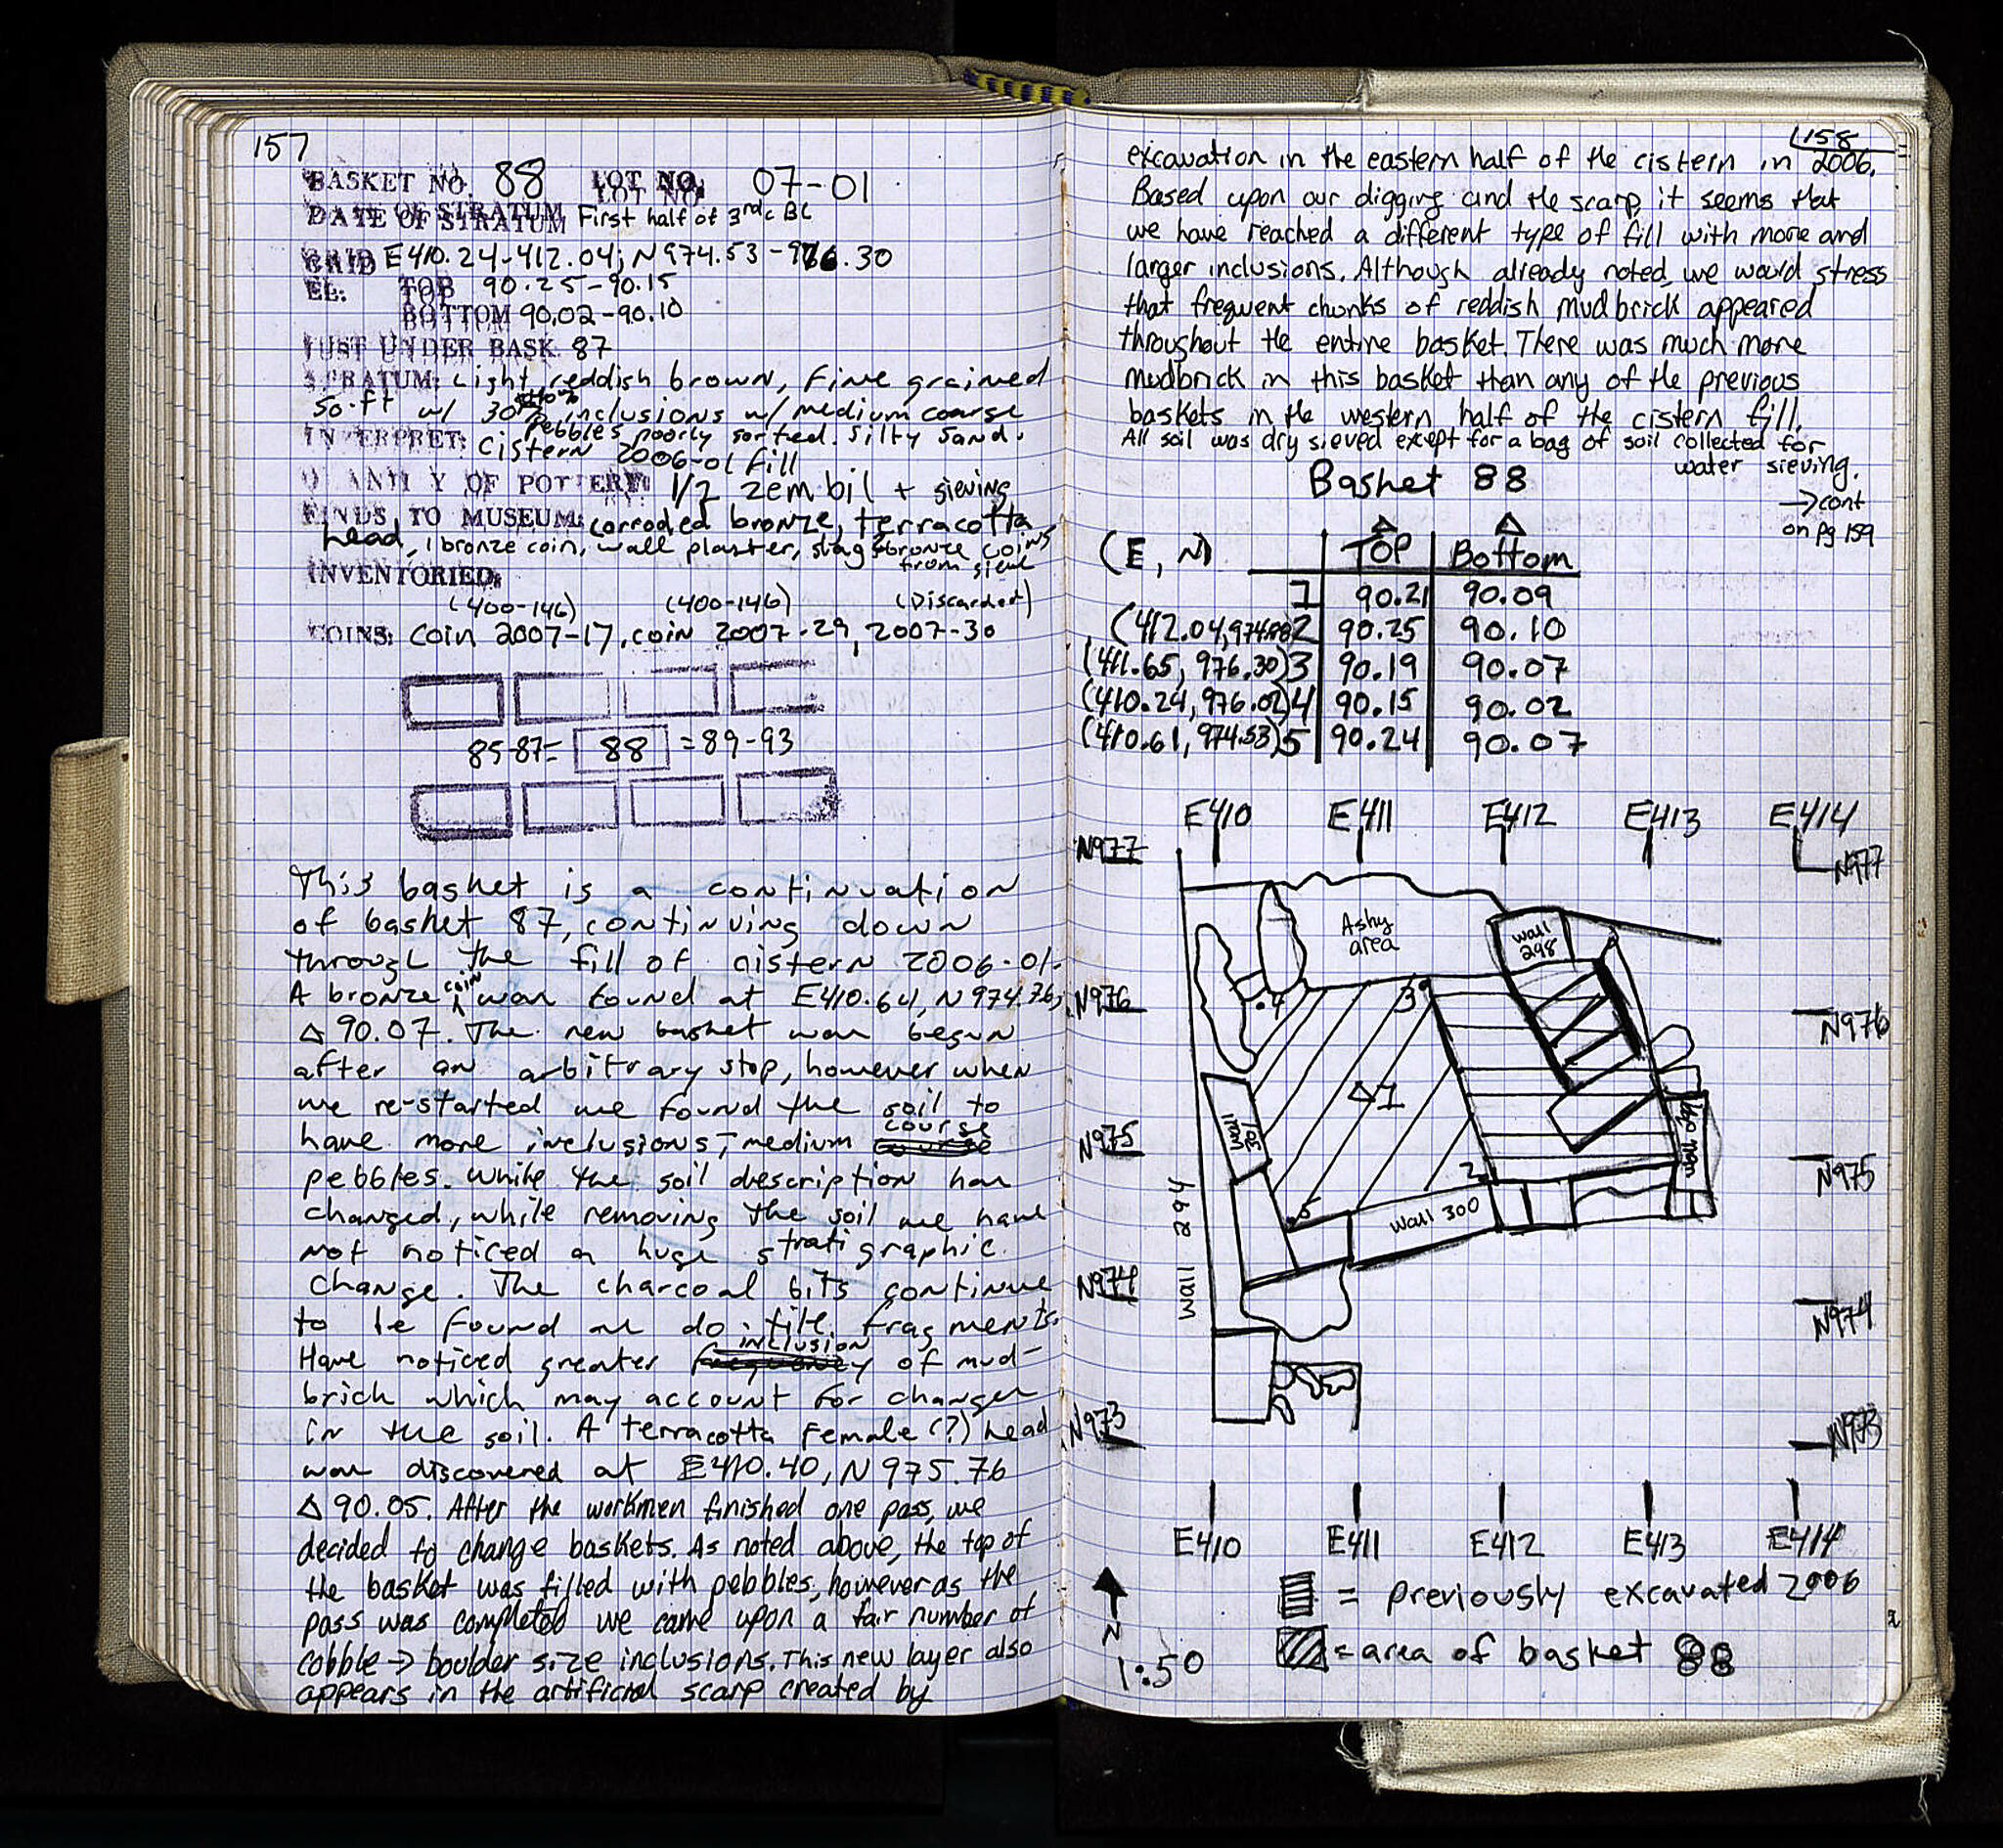 157
BASKET NO. 88 LOT NO. 07-01
DATE OF STRATUM First half of 3rd c BC
GRID E410.24-412.04; N974.53-976.30
EL: TOP 90.25-90.15
BOTTOM 90.02-90.10
JUST UNDER BASK. 87
STRATUM: Light reddish brown, fine grained
soft w/ 30% inclusions w/ medium coarse
pebbles poorly sorted. Silty sand.
INTERPRET: Cistern 2006-01 fill
QUANTITY OF POTTERY: 1/2 zembil + sieving
FINDS TO MUSEUM: corroded bronze, terracotta
head, 1 bronze coin, wall plaster, slag, bronze coins
from sieve
INVENTORIED:
(400-146) (400-146) (Discarded)
COINS: coin 2007-17, coin 2007-29, 2007-30
85-87= 88 =89-93
This basket is a continuation
of basket 87, continuing down
through the fill of cistern 2006-01.
A bronze coin was found at E410.64, N974.76,
△ 90.07. The new basket was begun
after an arbitrary stop, however when
we re-started we found the soil to
have more inclusions, medium course
pebbles. While the soil description has
changed, while removing the soil we have
not noticed a huge stratigraphic
change. The charcoal bits continue
to be found as do tile fragments.
Have noticed greater inclusion of mud-
brick which may account for changes
in the soil. A terracotta female (?) head
was discovered at E410.40, N975.76
△ 90.05. After the workmen finished one pass, we
decided to change baskets. As noted above, the top of
the basket was filled with pebbles, however as the
pass was completed we came upon a fair number of
cobble → boulder size inclusions. This new layer also
appears in the artificial scarp created by
158
excavation in the eastern half of the cistern in 2006.
Based upon our digging and the scarp it seems that
we have reached a different type of fill with more and
larger inclusions. Although already noted, we would stress
that frequent chunks of reddish mudbrick appeared
throughout the entire basket. There was much more
mudbrick in this basket than any of the previous
baskets in the western half of the cistern fill.
All soil was dry sieved except for a bag of soil collected for
water sieving.
→cont
on pg 159
Basket 88
(E, N) △ TOP △ Bottom
1 90.21 90.09
(412.04, 974.88) 2 90.25 90.10
(411.65, 976.30) 3 90.19 90.07
(410.24, 976.02) 4 90.15 90.02
(410.61, 974.53) 5 90.24 90.07
E410 E411 E412 E413 E414
N977 N977
Ashy
area
wall
298
N976 N976
.4 3
△1
N975 N975
wall
301
2
5
wall 300
wall 294
N974 N974
N973 N973
E410 E411 E412 E413 E414
= previously excavated 2006
N
= area of basket 88
1:50